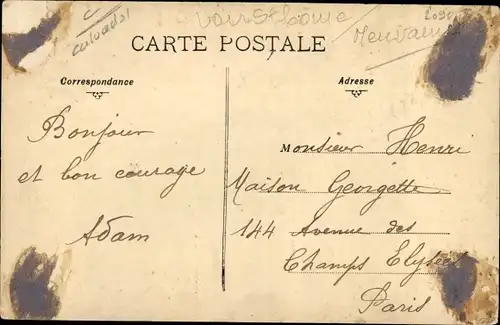 Calvados
CARTE POSTALE
Correspondance
Adresse
Bonjour
et bon courage
Adam
Monsieur Henri
Maison Georgette
144 Avenue des
Champs Elysées
Paris